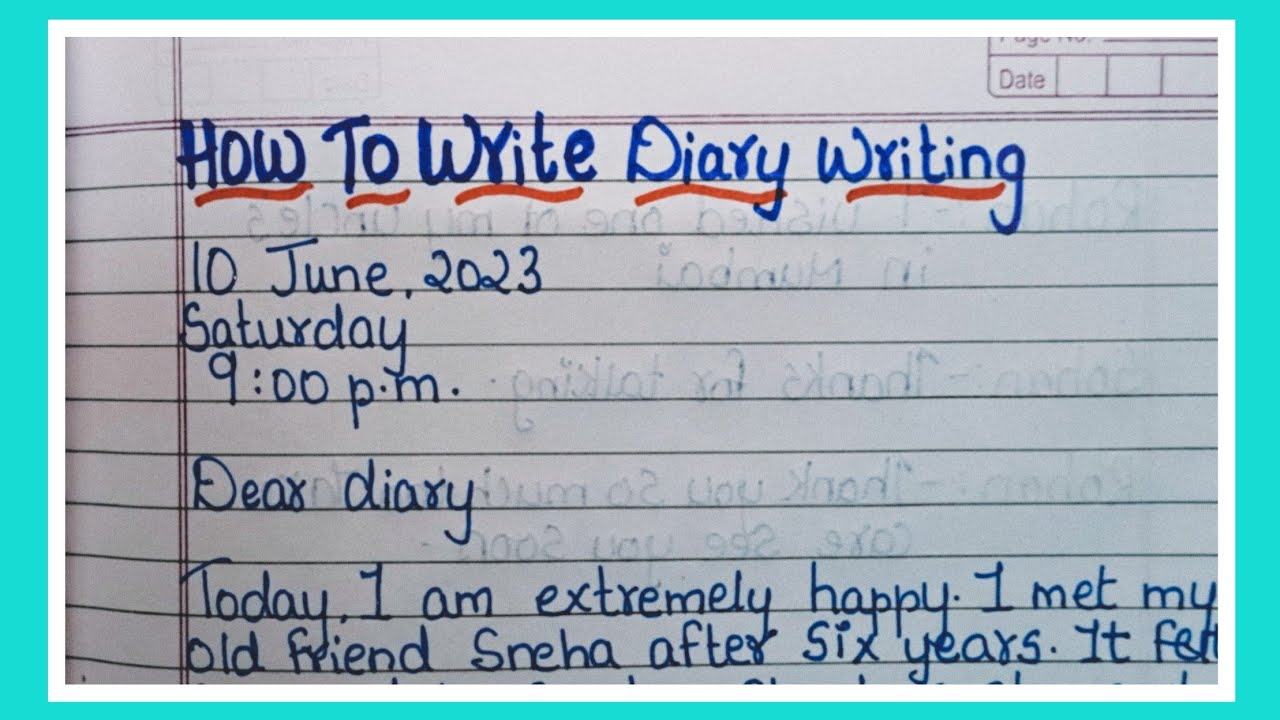 Page No.
Date
How To Write Diary Writing
10 June, 2023
Saturday
9:00 p.m.
Dear diary
Today, I am extremely happy. I met my
old friend Sneha after six years. It felt